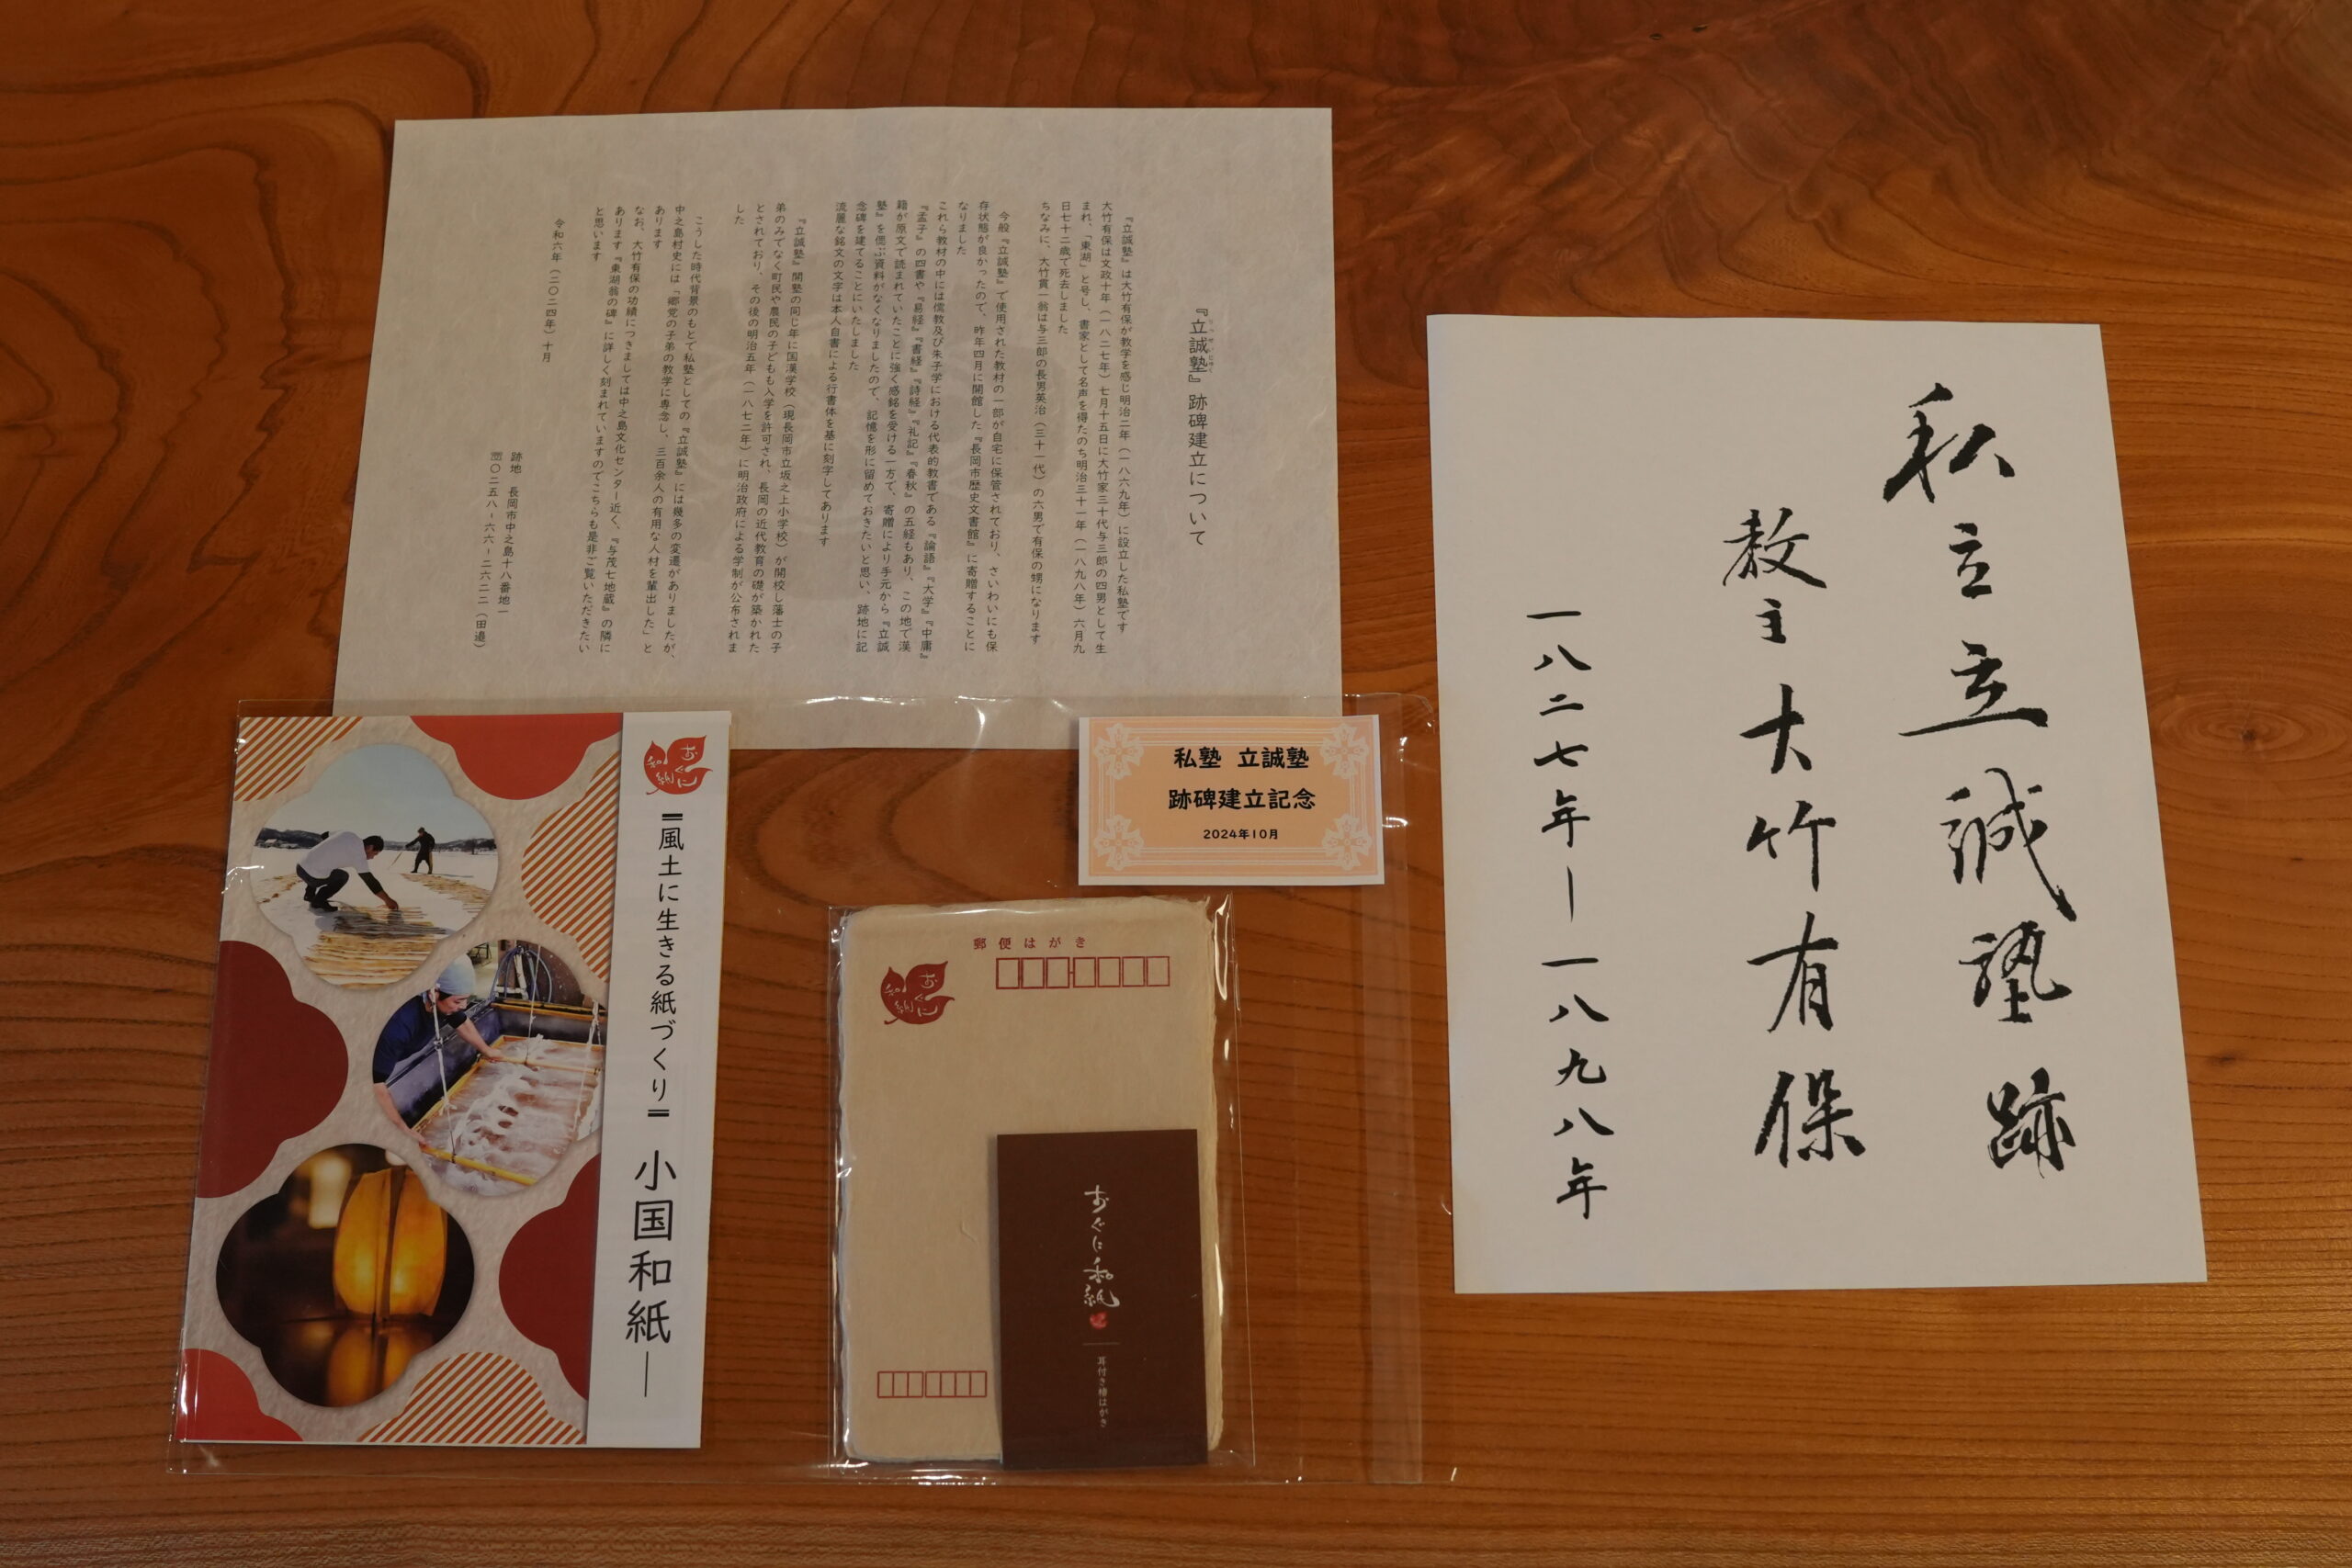 『立誠塾』跡碑建立について
『立誠塾』は大竹有保が教学を感じ明治二年（一八六九年）に設立した私塾です
大竹有保は文政十年（一八二七年）七月十五日に大竹家三十代与三郎の四男として生
まれ、「東湖」と号し、書家として名声を得たのち明治三十一年（一八九八年）六月九
日七十二歳で死去しました
ちなみに、大竹貫一翁は与三郎の長男英治（三十一代）の六男で有保の甥になります
今般『立誠塾』で使用された教材の一部が自宅に保管されており、さいわいにも保
存状態が良かったので、昨年四月に開館した『長岡市歴史文書館』に寄贈することに
なりました
これら教材の中には儒教及び朱子学における代表的教書である『論語』『大学』『中庸』
『孟子』の四書や『易経』『書経』『詩経』『礼記』『春秋』の五経もあり、この地で漢
籍が原文で読まれていたことに強く感銘を受ける一方で、寄贈により手元から『立誠
塾』を偲ぶ資料がなくなりましたので、記憶を形に留めておきたいと思い、跡地に記
念碑を建てることにいたしました
流麗な銘文の文字は本人自書による行書体を基に刻字してあります
『立誠塾』開塾の同じ年に国漢学校（現長岡市立坂之上小学校）が開校し藩士の子
弟のみでなく町民や農民の子どもも入学を許可され、長岡の近代教育の礎が築かれた
とされており、その後の明治五年（一八七二年）に明治政府による学制が公布されま
した
こうした時代背景のもとで私塾としての『立誠塾』には幾多の変遷がありましたが、
中之島村史には「郷党の子弟の教学に専念し、三百余人の有用な人材を輩出した」と
あります
なお、大竹有保の功績につきましては中之島文化センター近く、『与茂七地蔵』の隣に
あります『東湖翁の碑』に詳しく刻まれていますのでこちらも是非ご覧いただきたい
と思います
令和六年（二〇二四年）十月
跡地　長岡市中之島十八番地一
☏〇二五八-六六-二六二二（田邉）
私立立誠塾跡
教主大竹有保
一八二七年―一八九八年
おぐに
和紙
〓風土に生きる紙づくり〓 小国和紙―
私塾　立誠塾
跡碑建立記念
2024年10月
郵便はがき
おぐに
和紙
おぐに和紙
耳付き楮はがき